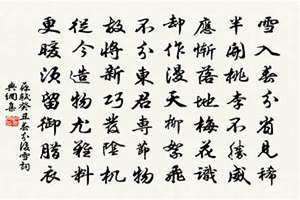 雪入春分省見稀
半開桃李不勝威
應慚落地梅花識
却作漫天柳絮飛
不分東君專節物
故將新巧發陰機
從今造物尤難料
更暖須留御臘衣
蘇軾癸丑春分後雪